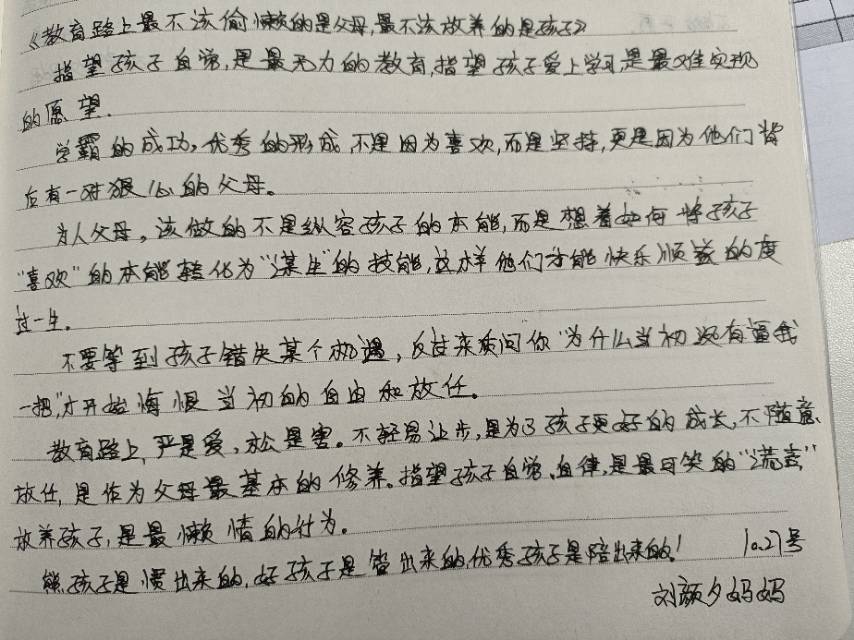 《教育路上最不该偷懒的是父母,最不该放养的是孩子》
指望孩子自觉,是最无力的教育,指望孩子爱上学习是最难实现
的愿望.
学霸的成功,优秀的形成,不是因为喜欢,而是坚持,更是因为他们背
后有一对狠心的父母。
为人父母,该做的不是纵容孩子的本能,而是想着如何将孩子
"喜欢"的本能转化为"谋生"的技能,这样他们才能快乐顺遂的度
过一生.
不要等到孩子错失某个机遇,反过来质问你"为什么当初没有逼我
一把",才开始悔恨当初的自由和放任。
教育路上,严是爱,松是害。不轻易让步,是为了孩子更好的成长,不随意
放任,是作为父母最基本的修养。指望孩子自觉、自律,是最可笑的"谎言"
放养孩子,是最懒惰的行为。
熊孩子是惯出来的,好孩子是管出来的,优秀孩子是陪出来的! 10.27号
刘颜夕妈妈